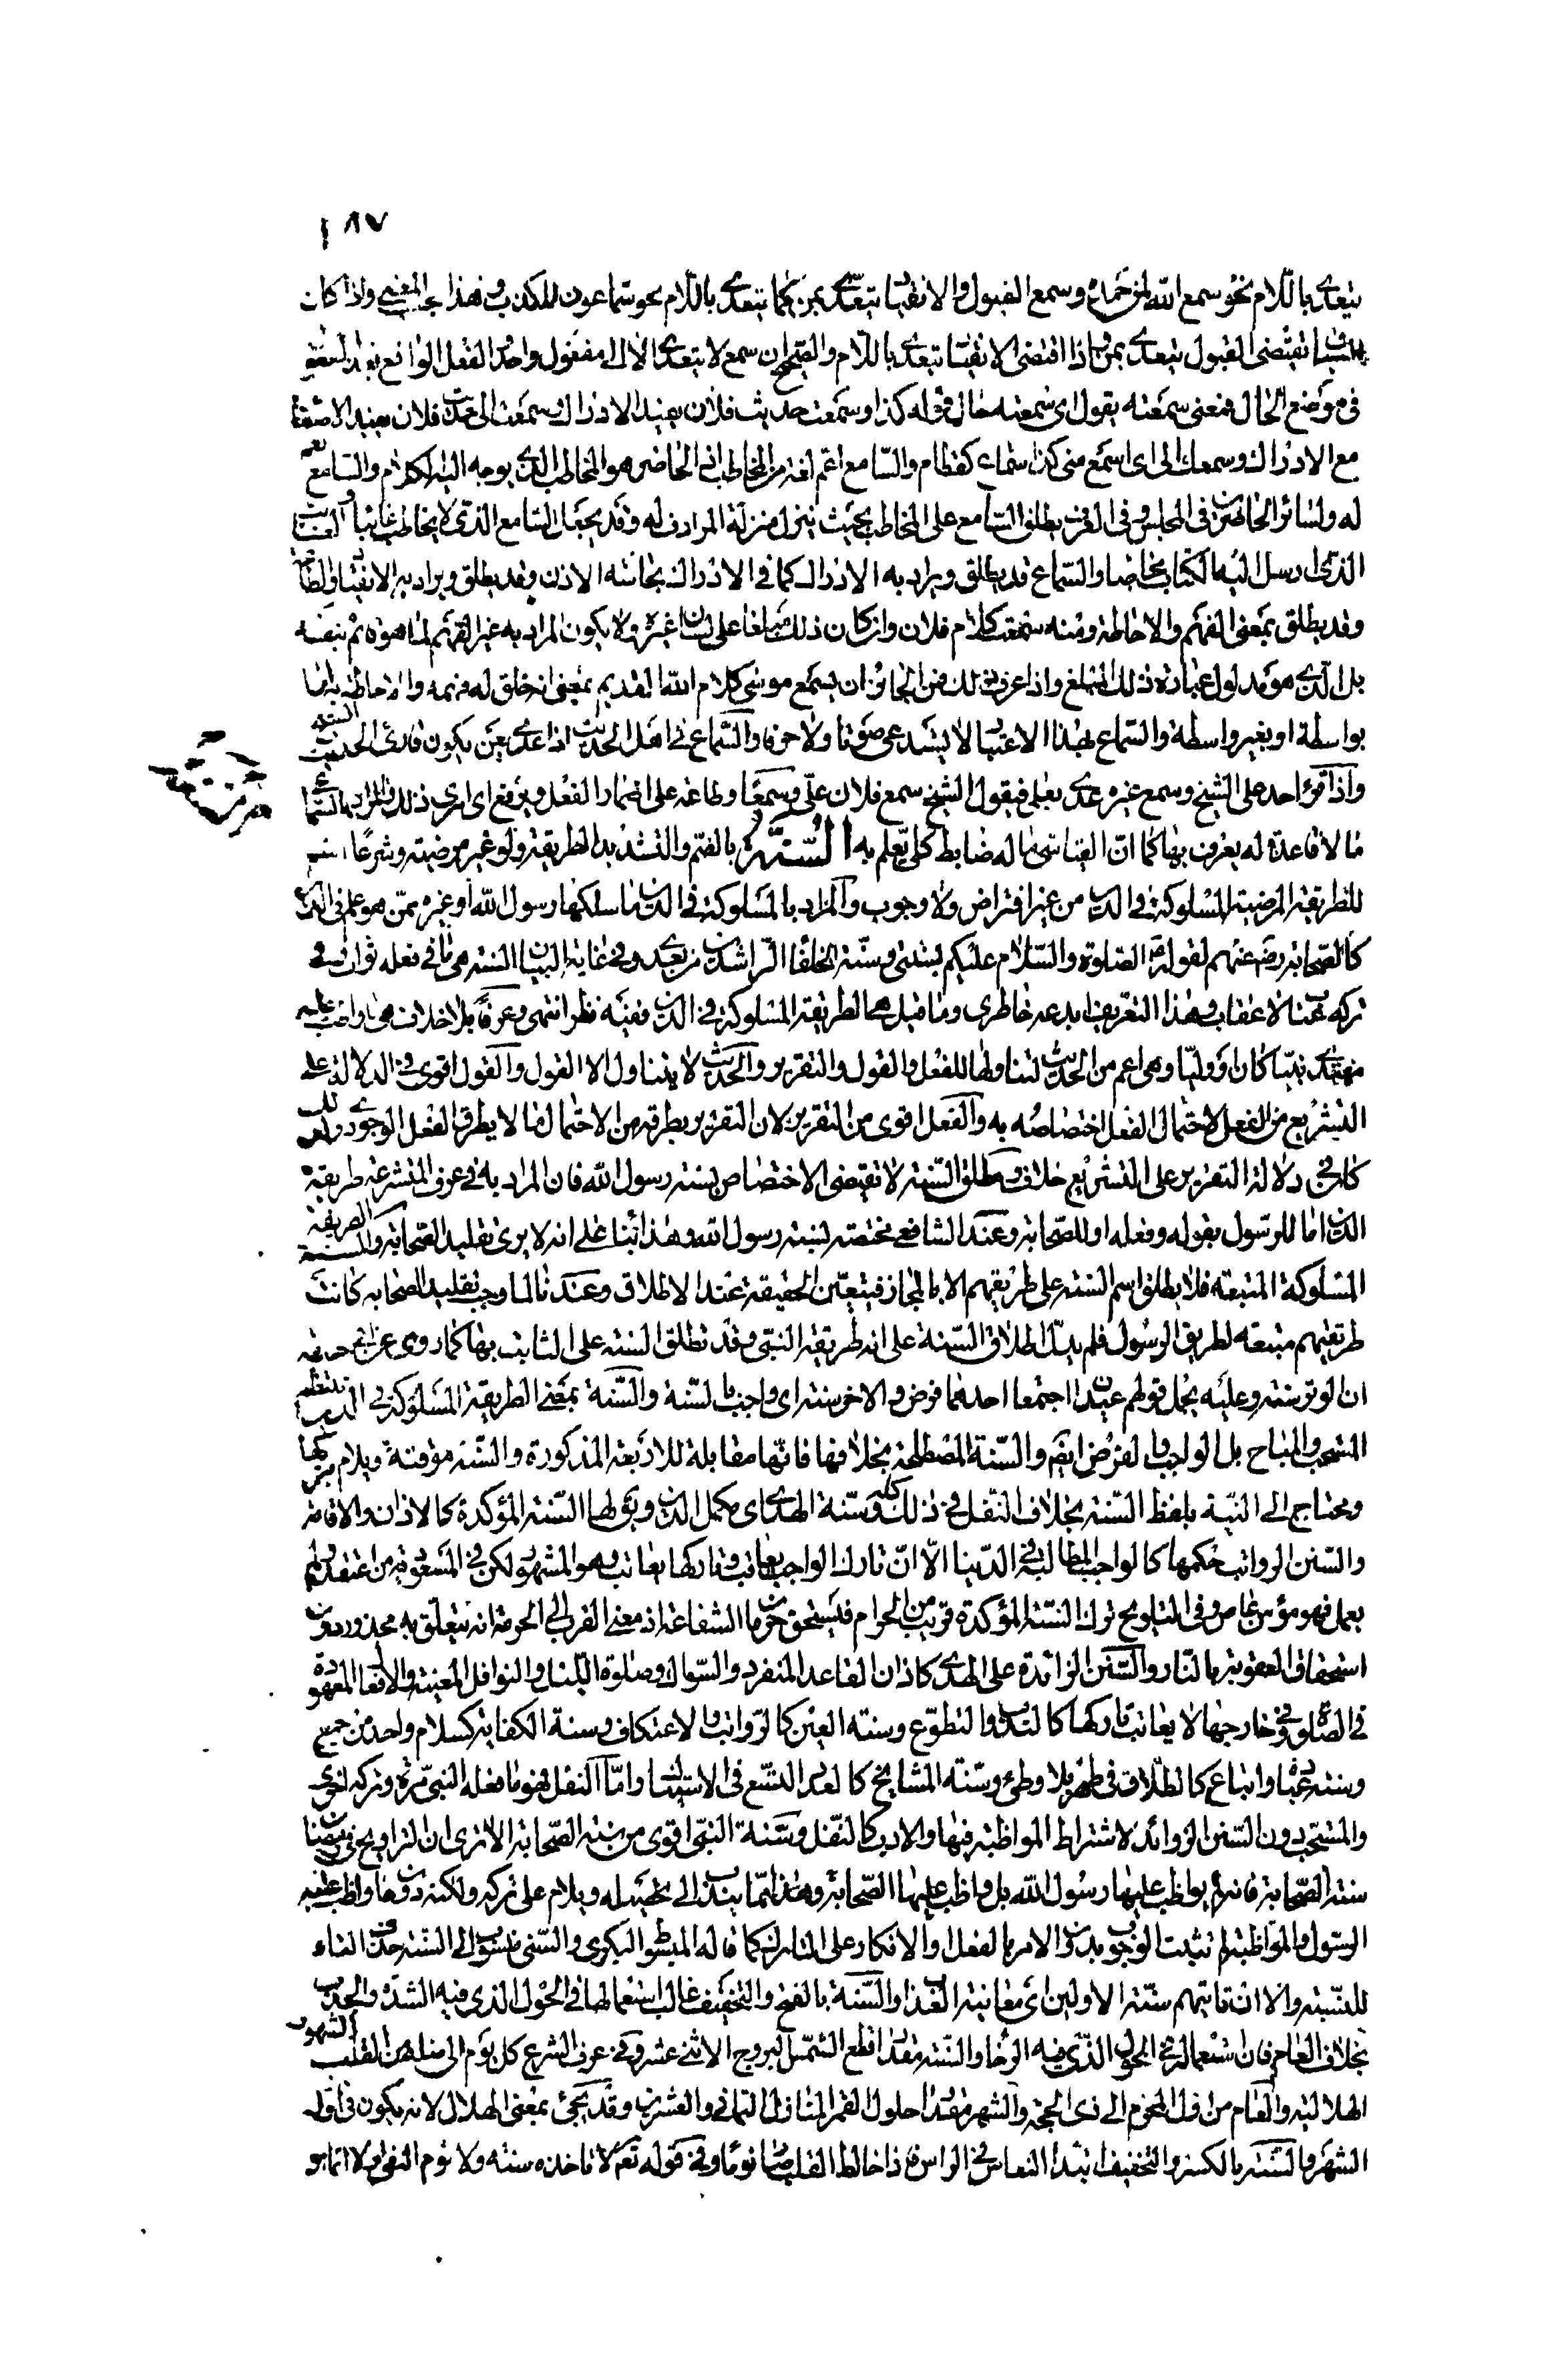 ١٨٧
يتعدى باللام نحو سمع الله لمن حمده وسمع القبول والانقياد يتعدى بمن كما يتعدى باللام نحو سماعون للكذب وهذا بحسب المعنى واذا كان
السياق يقتضى القبول يتعدى بمن واذا اقتضى الانقياد يتعدى باللام والصحيح ان سمع لا يتعدى الا الى مفعول واحد والفعل الواقع بعد المفعول
فى موضع الحال فمعنى سمعته يقول اى سمعته حال قوله كذا وسمعت حديث فلان يفيد الادراك وسمعت الى حديث فلان يفيد الاصغاء
مع الادراك وسمعك الى اى اسمع منى كذا سماع كقطام والسامع اعم لغة من المخاطب اذ الحاضر هو المخاطب الذى يوجه اليه الكلام والسامع يعم
له ولسائر الحاضرين فى المجلس وفى العرف يطلق السامع على المخاطب بحيث ينزل منزلة المرادف له وقد يجعل السامع الذى لا يخاطب غائبا والغائب
الذى ارسل اليه الكتاب مخاطبا والسماع قد يطلق ويراد به الادراك كما فى الادراك بحاسة الاذن وقد يطلق ويراد به الانقياد والطاعة
وقد يطلق بمعنى الفهم والاحاطة ومنه سمعت كلام فلان وان كان ذلك مبلغا على لسان غيره ولا يكون المراد به غير الفهم لما هو قائم بنفسه
بل الذى هو مدلول عبارة ذلك المبلغ واذا عرف ذلك فمن الجائز ان يسمع موسى كلام الله القديم بمعنى انه خلق له فهمه والاحاطة به اما
بواسطة او بغير واسطة والسماع بهذا الاعتبار لا يستدعى صوتا ولا حرفا والسماع فى اهل الحديث اذا عدى بعن يكون قارئ الحديث الشيخ
واذا قرأ احد على الشيخ وسمع غيره عدى بعلى فيقول الشيخ سمع فلان على وسمعا وطاعة على اضمار الفعل ويرفع اى امرى ذلك والمراد بالسماع
ما لا قاعدة له يعرف بها كما ان القياسى ما له ضابط كلى يعلم به السنة بالضم والتشديد الطريقة ولو غير مرضية وشرعا اسم
للطريقة المرضية المسلوكة فى الدين من غير افتراض ولا وجوب والمراد بالمسلوكة فى الدين ما سلكها رسول الله او غيره ممن هو علم فى الدين
كالصحابة رضى عنهم لقوله عليه الصلوة والسلام عليكم بسنتى وسنة الخلفا الراشدين من بعدى وفى غاية البيان السنة هى ما فى فعله ثواب وفى
تركه عتاب لا عقاب وهذا التعريف ابدعه خاطرى وما قيل هى الطريقة المسلوكة فى الدين ففيه نظر انتهى وعرفا بلا خلاف هى ما واظب عليه
مقتدى نبيا كان او وليا وهى اعم من الحديث لتناولها للفعل والقول والتقرير والحديث لا يتناول الا القول والقول اقوى فى الدلالة على
التشريع من الفعل لاحتمال الفعل اختصاصه به والفعل اقوى من التقرير لان التقرير يطرقه من الاحتمال ما لا يطرق الفعل الوجودى ولذلك
كان فى دلالة التقرير على التشريع خلاف ومطلق السنة لا تقتضى الاختصاص بسنة رسول الله فان المراد به فى عرف المتشرعة طريقة
الدين اما للرسول بقوله وفعله او للصحابة وعند الشافعى مختصة بسنة رسول الله وهذا بناء على انه لا يرى تقليد الصحابة والسنة الطريقة
المسلوكة المتبعة فلا يطلق اسم السنة على طريقهم الا بالمجاز فيتعين الحقيقة عند الاطلاق وعندنا لما وجب تقليد الصحابة كانت
طريقتهم متبعة لطريق الرسول فلم يدل اطلاق السنة على انه طريقة النبى وقد تطلق السنة على الثابت بها كما روى عن ابى حنيفة
ان الوتر سنة وعليه يحمل قولهم عيدان اجتمعا احدهما فرض والاخر سنة اى واجب بالسنة والسنة بمعنى الطريقة المسلوكة فى الدين تنتظم
المستحب والمباح بل الواجب والفرض ايضا والسنة المصطلحة بخلافها فانها مقابلة للاربعة المذكورة والسنة موقتة ويلام بتركها
ومحتاج الى النية بلفظ السنة بخلاف النفل فى ذلك كله وسنة الهدى اى مكمل الدين ويقال لها السنة المؤكدة كالاذان والاقامة
والسنن الرواتب حكمها كالواجب المطالبة فى الدنيا الا ان تارك الواجب يعاقب وتاركها يعاتب هو المشهور لكن فى المسعودية من اعتقد ولم
يعمل فهو مؤمن عاص وفى التلويح ترك السنة المؤكدة قريب من الحرام فيستحق حرمان الشفاعة اذ معنى القرب الى الحرمة انه يتعلق به محذور دون
استحقاق العقوبة بالنار والسنن الزائدة على الهدى كاذان القاعد المنفرد والسواك وصلوة الليل والنوافل المعينة والافعال المعهودة
فى الصلوة وفى خارجها لا يعاتب تاركها كالندب والتطوع وسنة العين كالرواتب والاعتكاف وسنة الكفاية كسلام واحد من جميع
وسنة عبادة واتباع كالطلاق فى طهر بلا وطئ وسنة المشايخ كالعدد التسع فى الاستنثار واما النفل فهو ما فعله النبى مرة وتركه اخرى
والمستحب دون السنن الزوائد لاشتراط المواظبة فيها والادب كالنفل وسنة النبى اقوى من سنة الصحابة الا ترى ان التراويح فى رمضان
سنة الصحابة فانه لم يواظب عليها رسول الله بل واظب عليها الصحابة وهذا مما يندب الى تحصيله ويلام على تركه ولكنه دون ما واظب عليه
الرسول والمواظبة لم تثبت الوجوب بدون الامر بالفعل والانكار على التارك كما قاله المبسوط البكرى والسنى منسوب الى السنة حذف التاء
للنسبة والا ان تاتيهم سنة الاولين اى معاينة العذاب والسنة بالفتح والتخفيف غالب استعمالها فى الحول الذى فيه الشدة والجدب
بخلاف العام فان استعماله فى الحول الذى فيه الرخا والسنة مقدار قطع الشمس البروج الاثنى عشر وفى عرف الشرع كل يوم الى مثله من القابل الشهور
الهلالية والعام من اول المحرم الى ذى الحجة والشهر مقدار حلول القمر المنازل الثمانى والعشرين وقد يجئ بمعنى الهلال لانه يكون فى اول
الشهر والسنة بالكسر والتخفيف ابتداء النعاس فى الراس فاذا خالط القلب صار نوما وفى قوله تعالى لا تاخذه سنة ولا نوم النفى ولا انما هو